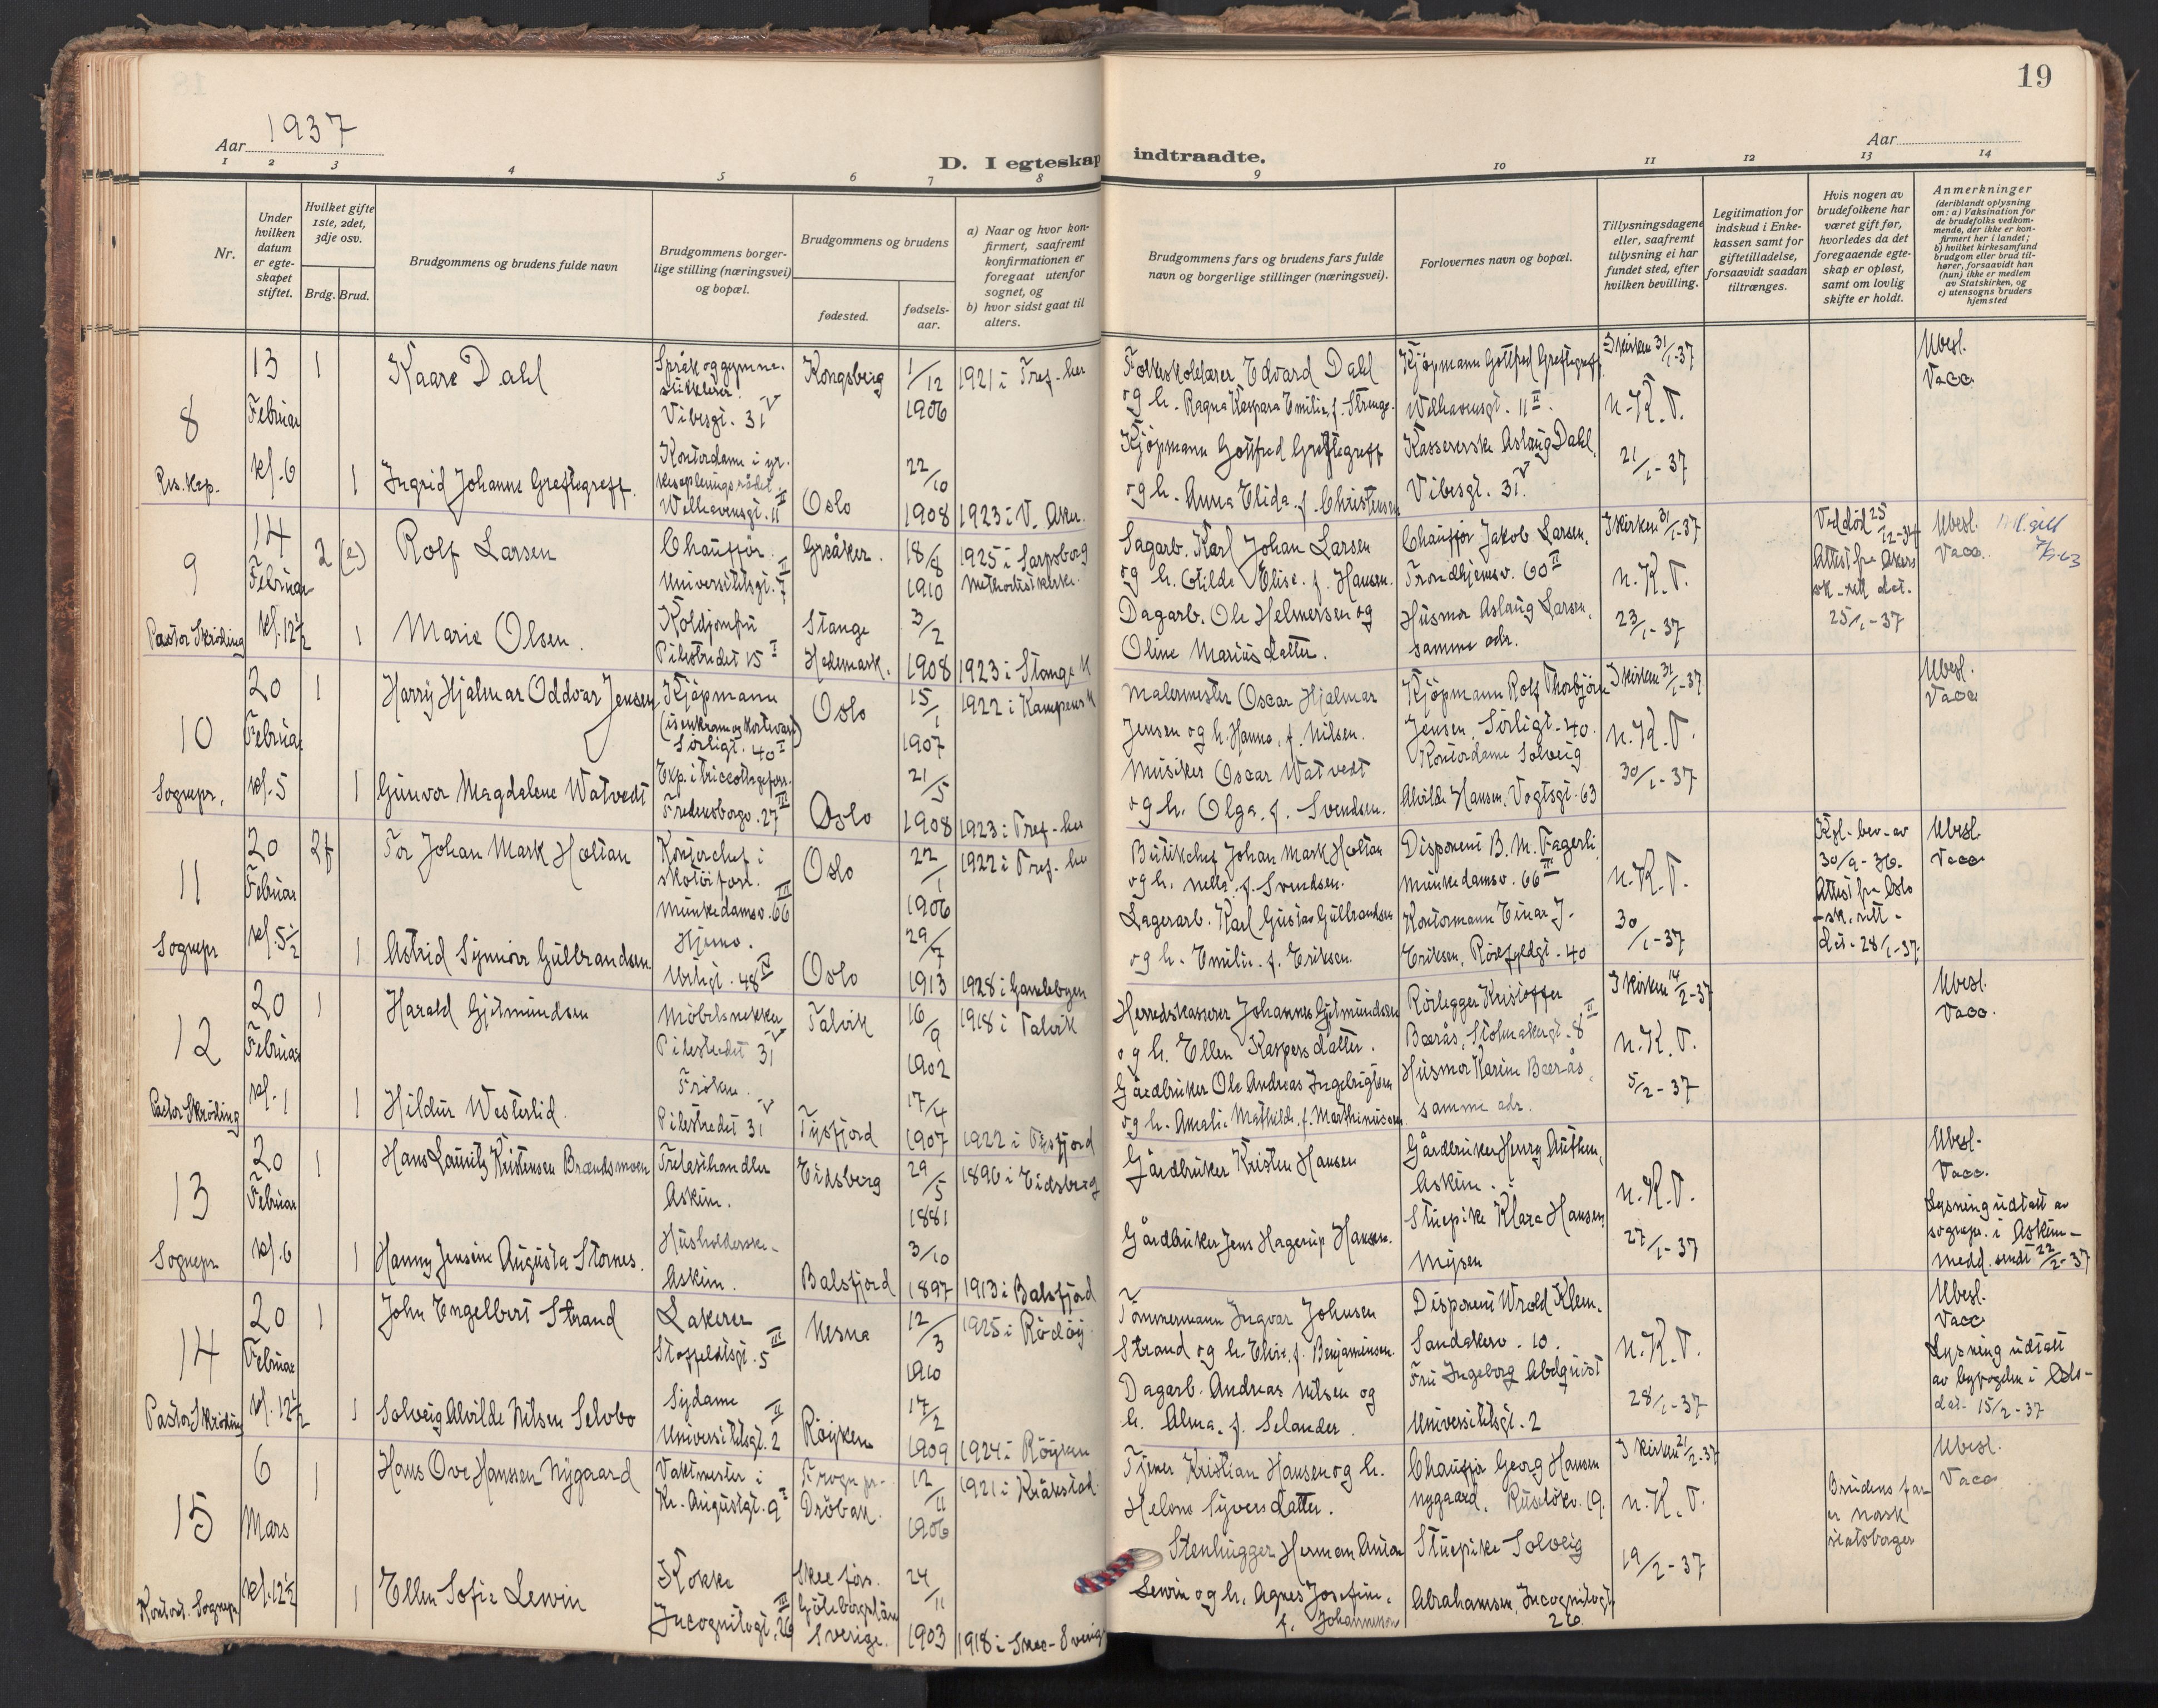 19
Aar 1937
Aar
D. I egteskap indtraadte.
1 2 3 4 5 6 7 8 9 10 11 12 13 14
Nr.
Under hvilken datum er egteskapet stiftet.
Hvilket gifte 1ste, 2det, 3dje osv.
Brdg. Brud.
Brudgommens og brudens fulde navn
Brudgommens borgerlige stilling (næringsvei) og bopæl.
Brudgommens og brudens
fødested.
fødselsaar.
a) Naar og hvor konfirmert, saafremt konfirmationen er foregaat utenfor sognet, og
b) hvor sidst gaat til alters.
Brudgommens fars og brudens fars fulde navn og borgerlige stillinger (næringsvei).
Forlovernes navn og bopæl.
Tillysningsdagene eller, saafremt tillysning ei har fundet sted, efter hvilken bevilling.
Legitimation for indskud i Enkekassen samt for giftetilladelse, forsaavidt saadan tiltrænges.
Hvis nogen av brudefolkene har været gift før, hvorledes da det foregaaende egteskap er opløst, samt om lovlig skifte er holdt.
Anmerkninger
(deriblandt oplysning om: a) Vaksination for de brudefolks vedkommende, der ikke er konfirmert her i landet; b) hvilket kirkesamfund brudgom eller brud tilhører, forsaavidt han (hun) ikke er medlem av Statskirken, og c) utensogns bruders hjemsted
8
Res. kap.
13 Februar kl. 6
1
Kaare Dahl
Språk og gymnastikklærer.
Vibesgt. 31 V
Kongsberg
1/12 1906
1921 i Tref. her
Folkeskolelærer Edvard Dahl
og h. Ragna Kaspara Emilie, f. Strenge.
Kjøpmann Gottfred Greftegreff
Welhavensgt. 11 II.
I kirken 31/1-37
n. K. T.
21/1-37
Ubesl.
Vacc.
1
Ingrid Johanne Greftegreff.
Kontordame i yr.
Welhavensgt. 11 II
Oslo
22/10 1908
1923 i V. Aker.
Kjøpmann Gottfred Greftegreff
og h. Anna Elida f. Christensen
Kassererske Aslaug Dahl,
Vibesgt. 31 V.
9
Pastor Skröding
14 Februar kl. 12 1/2
2 (e)
Rolf Larsen
Chauffør.
Universitetsgt. 7 II
Greåker.
18/8 1910
1925 i Sarpsborg
Methodistkirke.
Sagarb. Karl Johan Larsen
og h. Otilde Elise f. Hansen.
Chauffør Jakob Larsen,
Trondhjemsv. 60 II
I kirken 31/1-37
n. K. T.
23/1-37
Ved död 25/12-34
Attest fra Akers
sk.rett dat.
25/1-37
Ubesl.
Vacc.
1
Marie Olsen.
Koldjomfru
Pilestredet 15 I
Stange
Hedemark.
3/2 1908
1923 i Stange K
Dagarb. Ole Helmersen og
Oline Mariusdatter.
Husmor Aslaug Larsen,
samme adr.
10
Sognepr.
20 Februar kl. 5
1
Harry Hjalmar Oddvar Jensen
Kjøpmann
(isenkram og kortevare)
Sörligt. 40 I
Oslo
15/1 1907
1922 i Kampens K
Malermester Oscar Hjalmar
Jensen og h. Hanna, f. Nilsen.
Kjøpmann Rolf Thorbjørn
Jensen, Sörligt. 40.
I kirken 31/1-37
n. K. T.
30/1-37
Ubesl.
Vacc
1
Gunvor Magdalene Watvedt
Exp. i tricotagefors.
Fredensborgv. 27 III
Oslo
21/5 1908
1923 i Tref. her
Musiker Oscar Watvedt
og h. Olga, f. Svendsen.
Kontordame Solveig
Alvilde Hansen, Vogtsgt. 63
11
Sognepr
20 Februar kl. 5 1/2
2 f
Tor Johan Mark Holtan
Kontorchef i
skotöiforr.
Munkedamsv. 66 III
Oslo
22/1 1906
1922 i Tref. her
Butikchef Johan Mark Holtan
og h. Nella f. Svendsen.
Disponent B. M. Fagerli,
Munkedamsv. 66 III
n. K. T.
30/1-37
Kgl. bev. av
30/9-36.
Attest fra Oslo
sk. rett
dat. 28/1-37.
Ubesl.
Vacc
1
Astrid Synnöve Gulbrandsen.
Hjemme.
Urtegt. 48 IV
Oslo
29/7 1913
1928 i Gamlebyen
Lagerarb. Karl Gustav Gulbrandsen
og h. Emilie f. Eriksen.
Kontormann Einar J.
Eriksen, Rörfyldgt. 40
12
Pastor Skröding
20 Februar kl. 1
1
Harald Gjetmundsen
Möbelsnekker
Pilestredet 31 V
Talvik
16/9 1902
1918 i Talvik
Herredskasserer Johannes Gjetmundsen
og h. Ellen Kaspersdatter.
Rörlegger Kristoffer
Baarås, Stolmakergt. 8 II
I kirken 14/2-37
n. K. T.
5/2-37
Ubesl.
Vacc.
1
Hildur Westerlid.
Fröken.
Pilestredet 31 V
Tysfjord
17/4 1907
1922 i Tysfjord
Gårdbruker Ole Andreas Ingebrigtsen
og h. Amalie Mathilde, f. Marthinussen
Husmor Karine Baarås,
samme adr.
13
Sognepr.
20 Februar kl. 6
1
Hans Lauritz Kristensen Brændsmoen
Trelasthandler
Askim.
Eidsberg
29/5 1881
1896 i Eidsberg
Gårdbruker Kristen Hansen
Gårdbruker Henry Autken,
Askim.
n. K. T.
27/1-37
Ubesl.
Vacc.
Lysning udtatt av
sognepr. i Askim
medd. sendt 22/2-37
1
Hanny Jensine Augusta Stornes.
Husholderske
Askim.
Balsfjord
3/10 1897
1913 i Balsfjord
Gårdbruker Jens Hagerup Hansen.
Stuepike Klara Hansen,
Mysen
14
Pastor Skröding
20 Februar kl. 12 1/2
1
John Engelbert Strand
Lakerer
Stoffeldtsgt. 5 III
Nesna
12/3 1910
1925 i Rödöy.
Tömmermann Ingvar Johnsen
Strand og h. Elise, f. Benjaminsen.
Disponent Wrold Klem,
Sandakerv. 10.
n. K. T.
28/1-37
Ubesl.
Vacc
Lysning udtatt
av byfogden i Oslo
dat. 15/2-37
1
Solveig Alvilde Nilsen Selvbo
Sydame
Universitetsgt. 2 II
Röyken
17/2 1909
1924 i Röyken
Dagarb. Andreas Nilsen og
h. Alma, f. Selander.
Fru Ingeborg Abelquist
Universitetsgt. 2
15
Konst. Sognepr.
6 Mars kl. 12 1/2
1
Hans Ove Hansen Nygaard
Vaktmester i
Kr. Augustgt. 9 I
Frogn pr.
Dröbak.
12/11 1906
1921 i Kråkstad.
Tjener Kristian Hansen og h.
Helene Syversdatter.
Chauffør Georg Hansen
Nygaard, Ruselökv. 19.
I kirken 21/2-37
n. K. T.
19/2-37
Brudens far
er norsk
statsborger
Ubesl.
Vacc
1
Ellen Sofie Lewin
Kokke
Incognitogt. 26 III
Skee förs.
Göteborgslän
Sverige.
24/11 1903
1918 i Skee-Sverige
Stenhugger Herman Anton
Lewin og h. Agnes Josefine,
f. Johanneson
Stuepike Solveig
Abrahamsen, Incognitogt.
26.